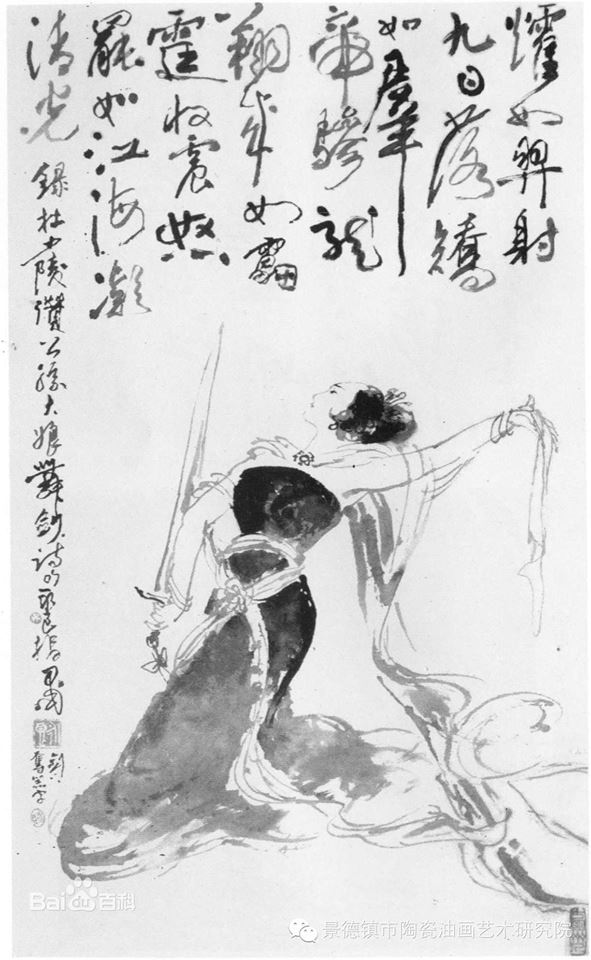 燿如羿射
九日落矯
如羣
帝驂龍
翔來如靁
霆收震怒
罷如江海凝
清光
錄杜少陵讚公孫大娘舞劍詩句
Bai百科
景德镇市陶瓷油画艺术研究院